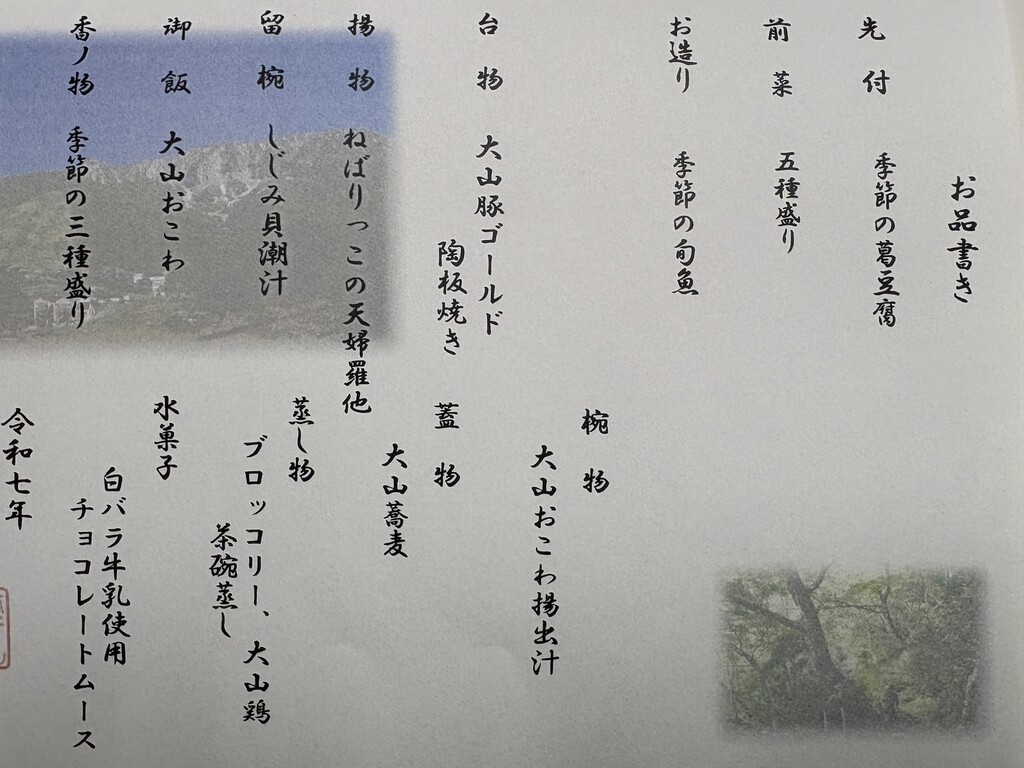 お品書き
先付 季節の葛豆腐
前菜 五種盛り
お造り 季節の旬魚
椀物
大山おこわ揚出汁
台物 大山豚ゴールド
陶板焼き
蓋物
大山蕎麦
揚物 ねばりっこの天婦羅他
蒸し物
ブロッコリー、大山鶏
茶碗蒸し
留椀 しじみ貝潮汁
御飯 大山おこわ
水菓子
白バラ牛乳使用
チョコレートムース
香ノ物 季節の三種盛り
令和七年